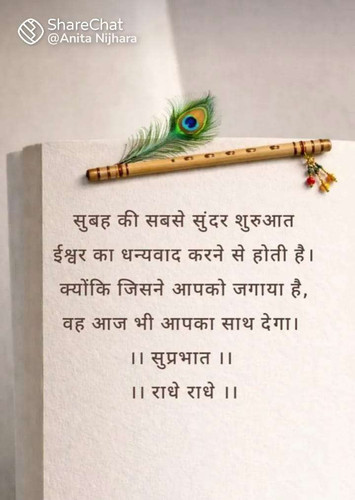 ShareChat
@Anita Nijhara
सुबह की सबसे सुंदर शुरुआत
ईश्वर का धन्यवाद करने से होती है।
क्योंकि जिसने आपको जगाया है,
वह आज भी आपका साथ देगा।
।। सुप्रभात ।।
।। राधे राधे ।।